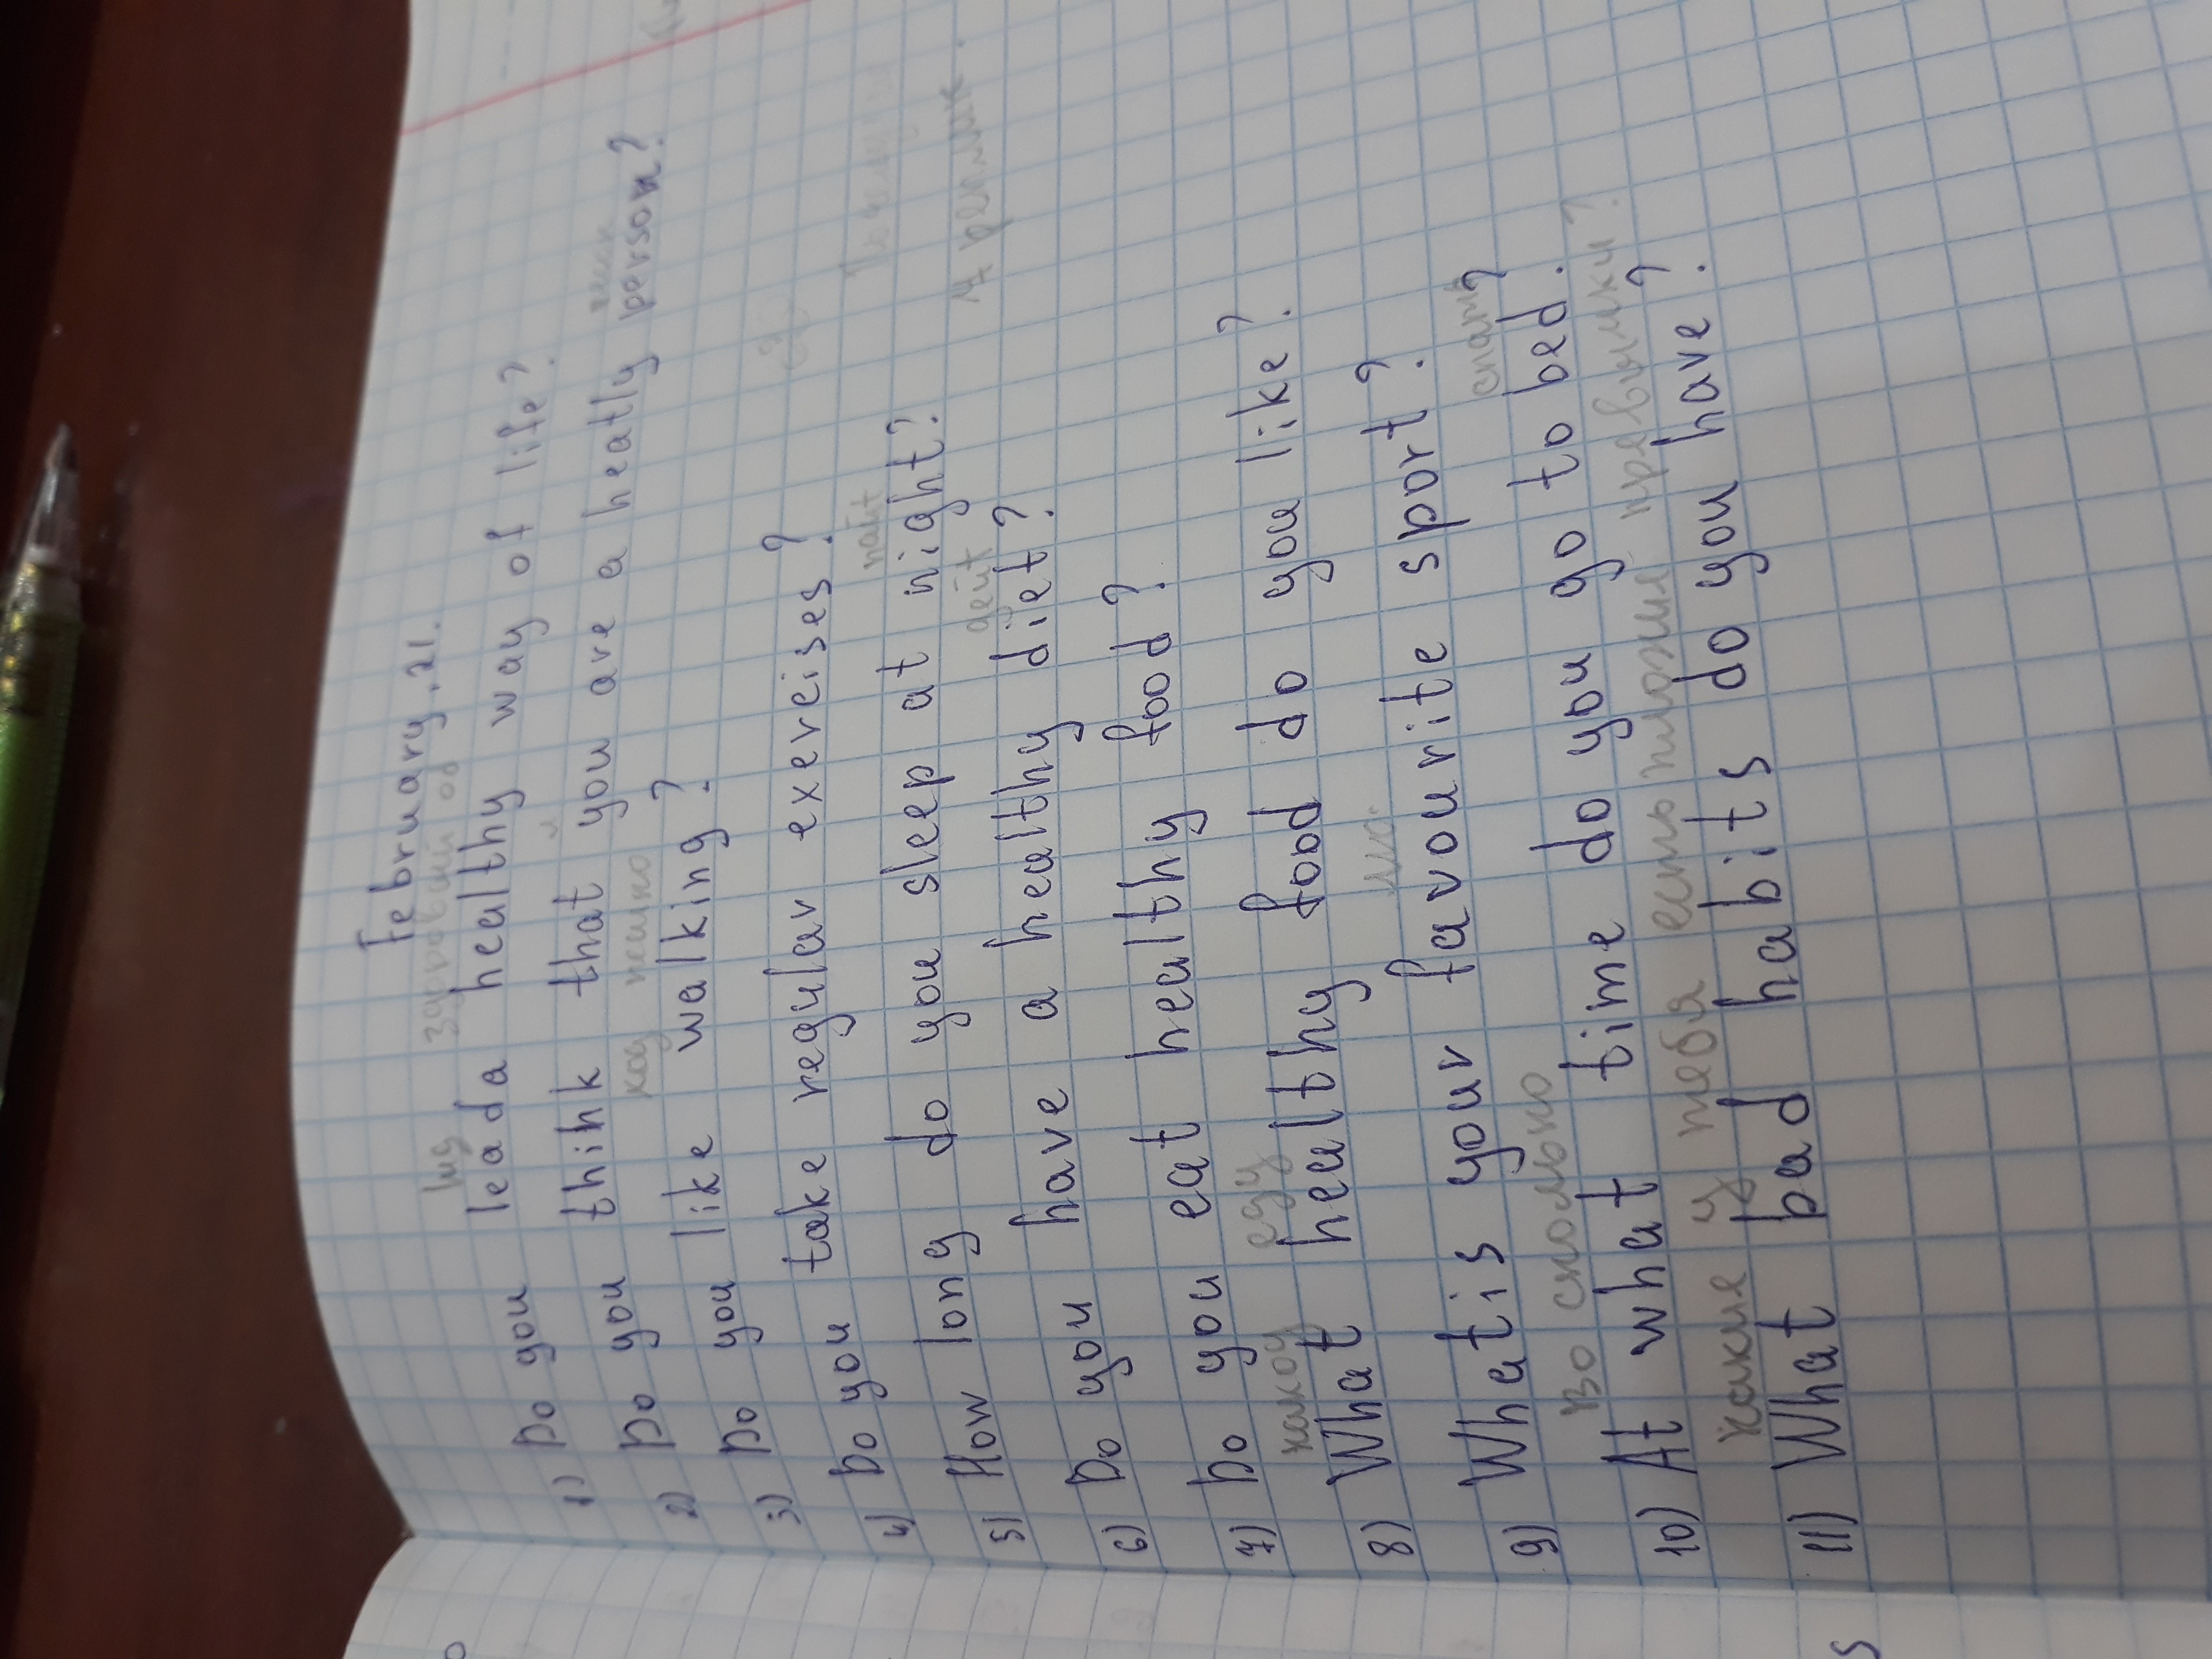 February, 21.
здоровый об
1) Do you lead a healthy way of life?
2) Do you think that you are a heatly person?
пешко
3) Do you like walking?
4) Do you take regular exereises?
найт
5) How long do you sleep at night?
дейт
6) Do you have a healthy diet?
7 реплик.
7) Do you eat healthy food?
какую еду
8) What healthy food do you like?
9) What is your favourite sport?
во сколько спать
10) At what time do you go to bed?
какие у тебя есть превычки?
11) What bad habits do you have?